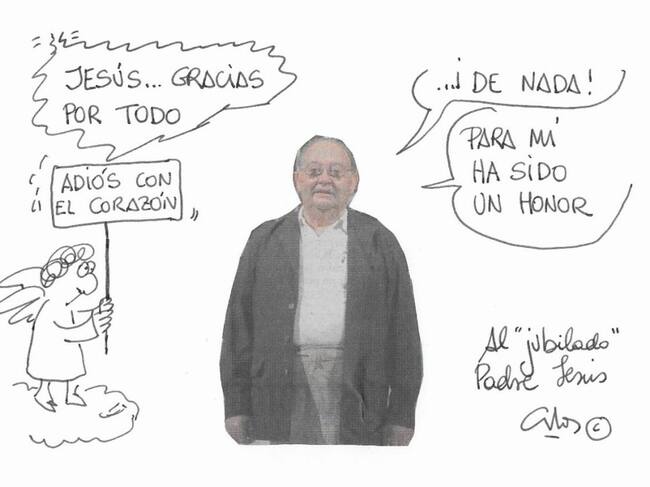 JESÚS... GRACIAS
POR TODO
ADIÓS CON
EL CORAZÓN
...¡DE NADA!
PARA MÍ
HA SIDO
UN HONOR
Al "jubilado"
Padre Jesús
©